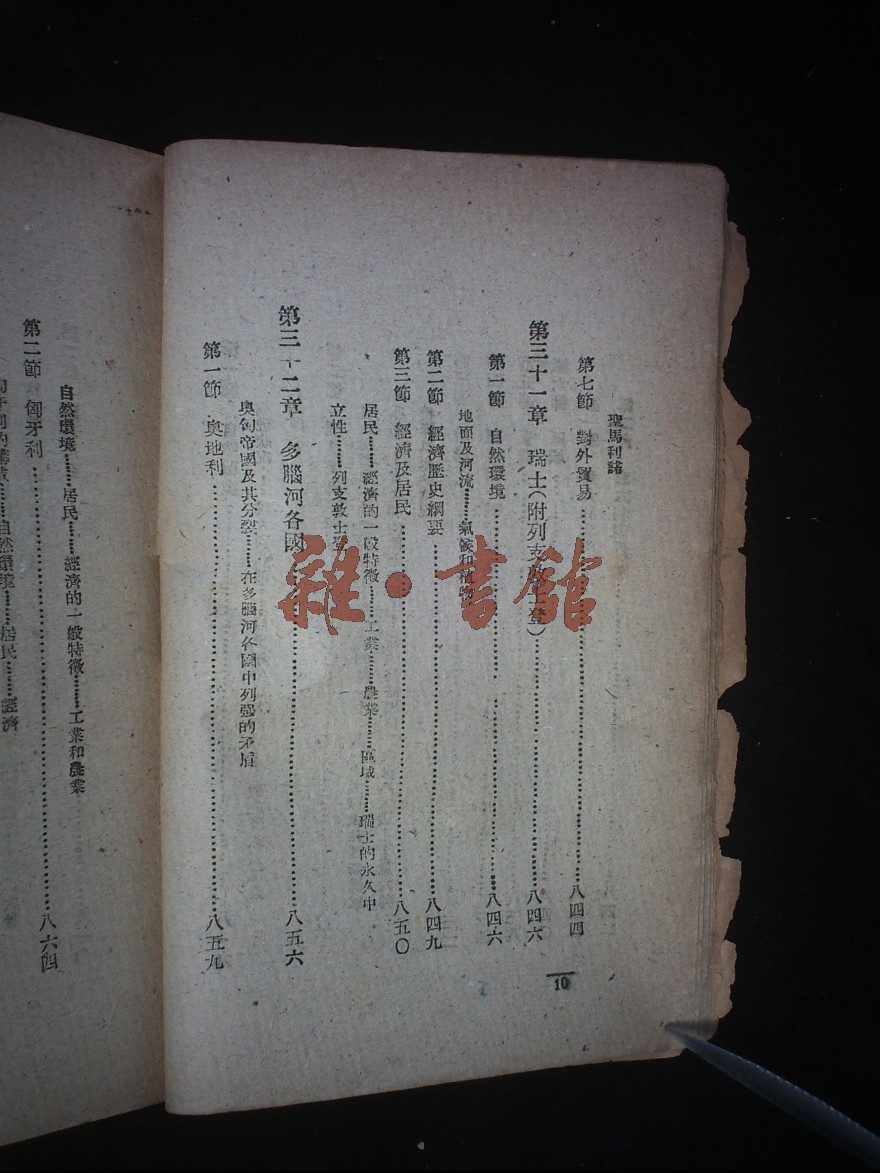 聖馬利諾
第七節 對外貿易……八四四
第三十一章 瑞士(附列支敦士登)……八四六
第一節 自然環境……八四六
地面及河流……氣候和植物
第二節 經濟歷史綱要……八四九
第三節 經濟及居民……八五〇
居民……經濟的一般特徵……工業……農業……區域……瑞士的永久中
立性……列支敦士登
第三十二章 多腦河各國……八五六
奧匈帝國及其分裂……在多腦河各國中列强的矛盾
第一節 奧地利……八五九
10
自然環境……居民……經濟的一般特徵……工業和農業
第二節 匈牙利……八六四
自然環境……居民……經濟
雜·書館